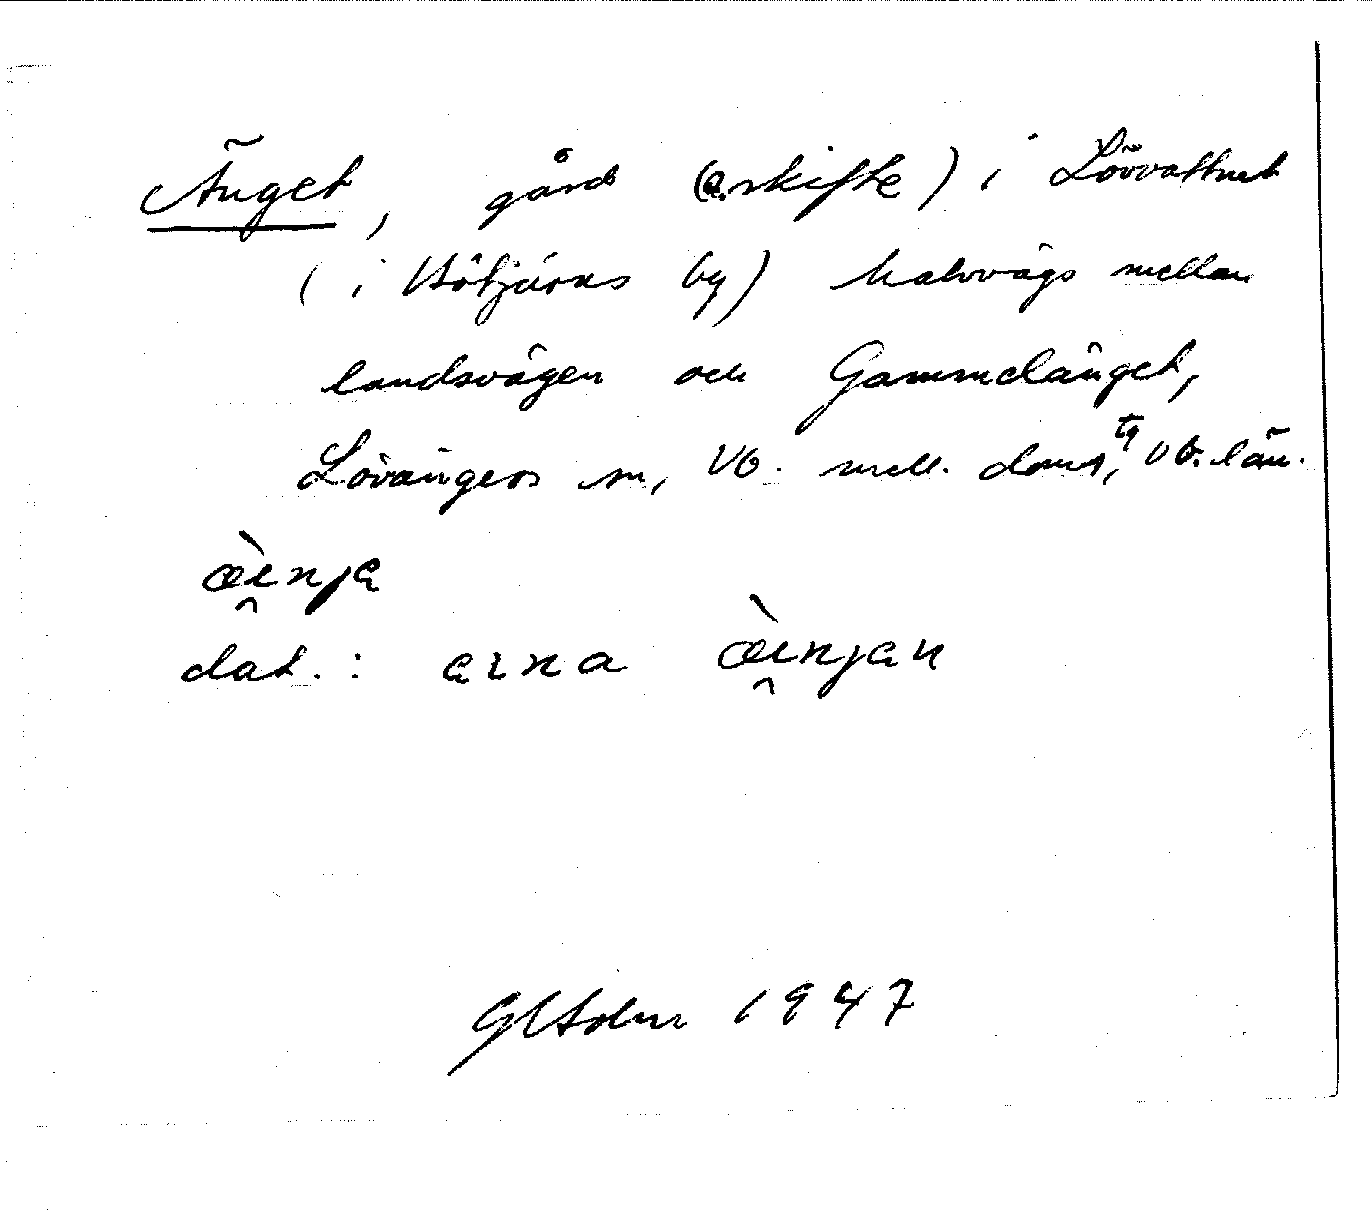 Änget, gård (o. skifte) i Lövvattnet
(i Hötjärns by) halvvägs mellan
landsvägen och Gammelänget,
Lövångers sn, Vb. mell. doms, tg Vb. län.
œ̀i̯nja
dat.: eina œ̀i̯njan
1947